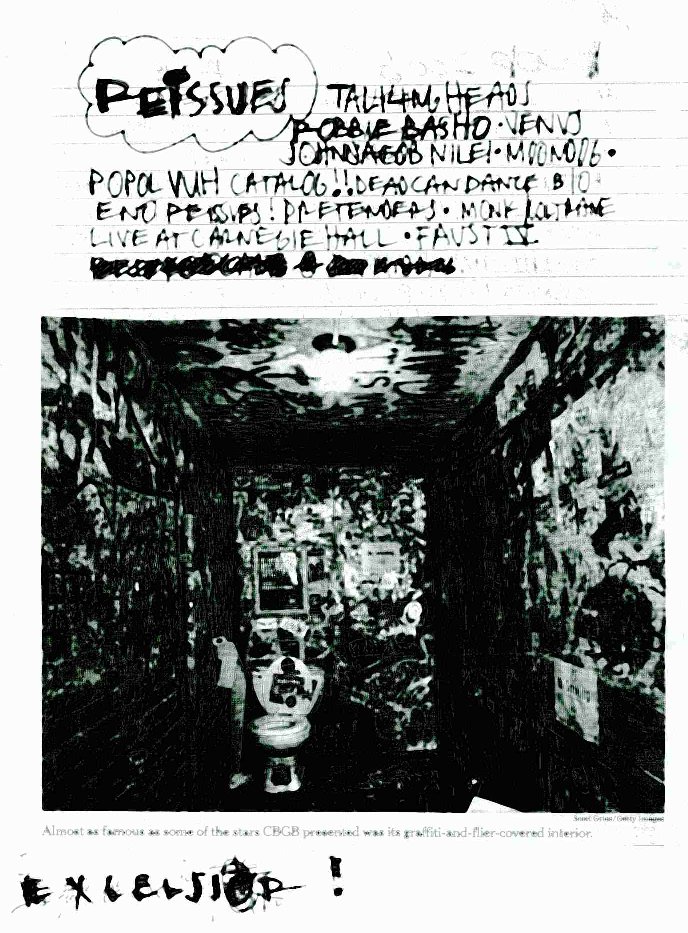 REISSUES
TALKING HEADS
ROBBIE BASHO · VENUS
JOHN JACOB NILES · MOONDOG ·
POPOL VUH CATALOG!! DEAD CAN DANCE BIO
ENO REISSUES! PRETENDERS · MONK COLTRANE
LIVE AT CARNEGIE HALL · FAUST IV
Getty Images
Almost as famous as some of the stars CBGB presented was its graffiti-and-flier-covered interior.
EXCELSIOR !